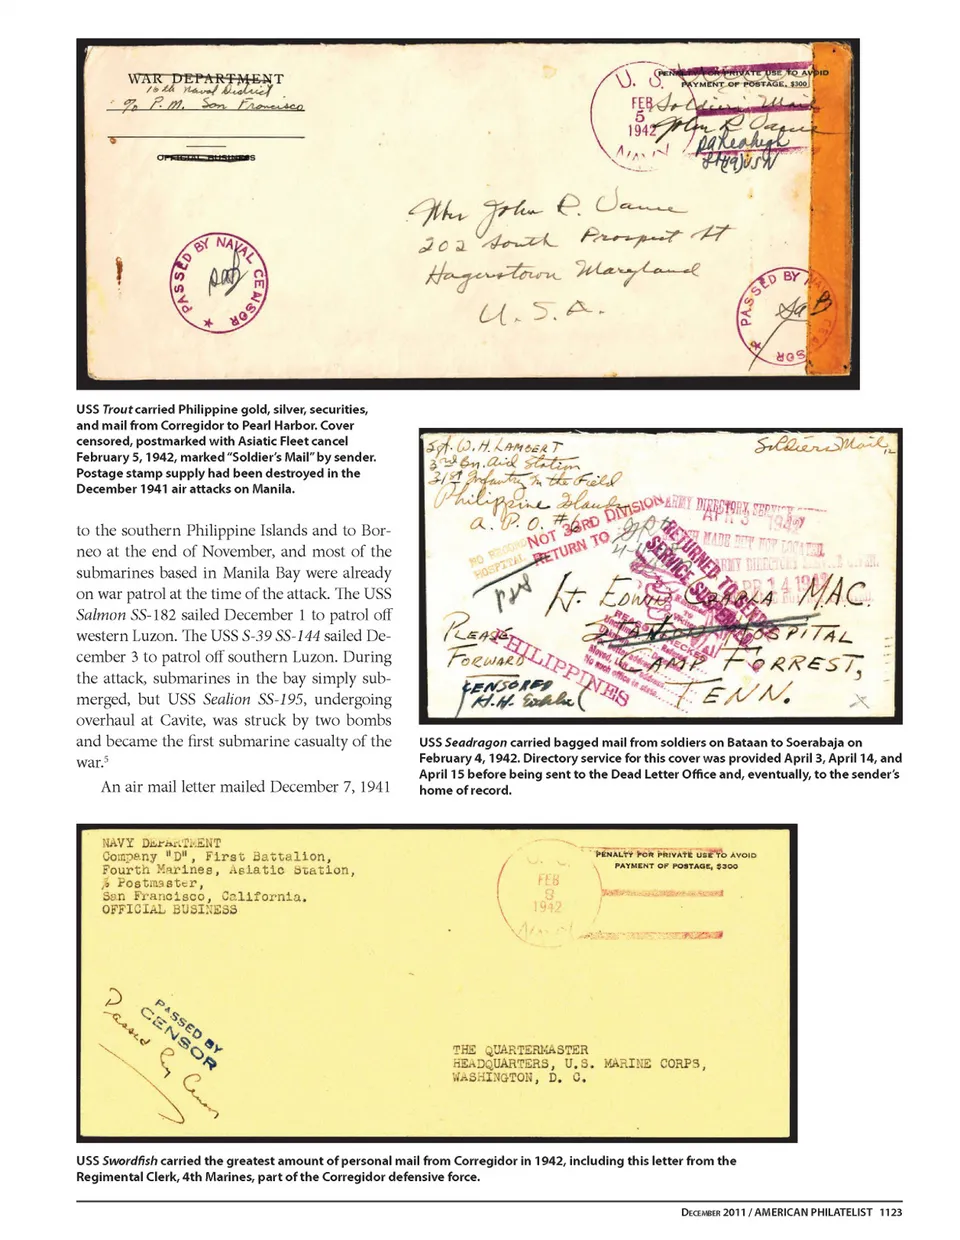 WAR DEPARTMENT
16th Naval District
c/o P.M. San Francisco
OFFICIAL BUSINESS
PENALTY FOR PRIVATE USE TO AVOID
PAYMENT OF POSTAGE, $300
U. S.
FEB
5
1942
NAVY
Soldiers Mail
John R Vance
Mrs John R. Vance
202 South Prospect St
Hagerstown Maryland
U.S.A.
PASSED BY NAVAL CENSOR
PASSED BY
USS Trout carried Philippine gold, silver, securities,
and mail from Corregidor to Pearl Harbor. Cover
censored, postmarked with Asiatic Fleet cancel
February 5, 1942, marked “Soldier’s Mail” by sender.
Postage stamp supply had been destroyed in the
December 1941 air attacks on Manila.
to the southern Philippine Islands and to Bor-
neo at the end of November, and most of the
submarines based in Manila Bay were already
on war patrol at the time of the attack. The USS
Salmon SS-182 sailed December 1 to patrol off
western Luzon. The USS S-39 SS-144 sailed De-
cember 3 to patrol off southern Luzon. During
the attack, submarines in the bay simply sub-
merged, but USS Sealion SS-195, undergoing
overhaul at Cavite, was struck by two bombs
and became the first submarine casualty of the
war.5
An air mail letter mailed December 7, 1941
Sgt. W. H. LAMBERT
3rd Bn. Aid Station
31st Infantry in the Field
Philippine Islands
A. P. O. #
Soldiers Mail
NOT 33RD DIVISION
RETURN TO
ARMY DIRECTORY SERVICE
APR 3 1942
MADE BUT NOT LOCATED
ARMY DIRECTORY
APR 14 1942
RETURNED TO SENDER
SERVICE SUSPENDED
Lt. EDWIN MAC.
HOSPITAL
CAMP FORREST,
TENN.
PLEASE
FORWARD
PHILIPPINES
CENSORED
USS Seadragon carried bagged mail from soldiers on Bataan to Soerabaja on
February 4, 1942. Directory service for this cover was provided April 3, April 14, and
April 15 before being sent to the Dead Letter Office and, eventually, to the sender’s
home of record.
NAVY DEPARTMENT
Company "D", First Battalion,
Fourth Marines, Asiatic Station,
% Postmaster,
San Francisco, California.
OFFICIAL BUSINESS
FEB
8
1942
NAVY
PENALTY FOR PRIVATE USE TO AVOID
PAYMENT OF POSTAGE, $300
PASSED BY
CENSOR
Passed by Censor
THE QUARTERMASTER
HEADQUARTERS, U.S. MARINE CORPS,
WASHINGTON, D. C.
USS Swordfish carried the greatest amount of personal mail from Corregidor in 1942, including this letter from the
Regimental Clerk, 4th Marines, part of the Corregidor defensive force.
DECEMBER 2011 / AMERICAN PHILATELIST 1123